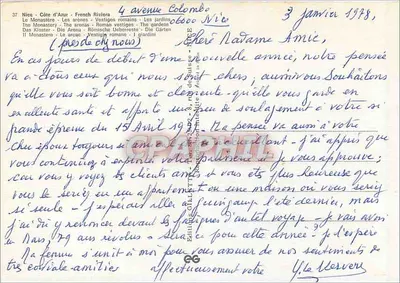 37 Nice - Côte d'Azur - French Riviera
Le Monastère - Les arènes - Vestiges romains - Les jardins
The Monastery - The arenas - Roman vestiges - The gardens
Das Kloster - Die Arena - Römische Ueberreste - Die Garten
Il Monastero - Le arene - I giardini
4 avenue Colombo
06000 Nice
3 janvier 1978,
(près de chez nous)
Chère Madame Amic,
En ces jours de début d'une nouvelle année, notre pensée
va à tous ceux qui nous sont chers, aussi vous souhaitons
qu'elle vous soit bonne et clémente - qu'elle vous garde en
excellente santé et apporte un peu de soulagement à votre si
grande épreuve du 15 Avril Ma pensée va aussi à votre
cher époux toujours si j'ai appris que
vous continuiez à exploiter votre je vous approuve;
car vous y voyez les clients amis et vous êtes plus heureuse que
vous le seriez en un appartement ou une maison où vous seriez
si seule - j'espérais aller à Guingamp l'été dernier, mais
j'ai dû y renoncer devant les fatigues d'un tel voyage - je vais avoir
en Mars, 79 ans révolus - sera-ce pour cette année - je l'espère
Ma femme s'unit à moi pour vous assurer de nos sentiments de
très cordiale amitié
affectueusement vôtre
CPAPHIL